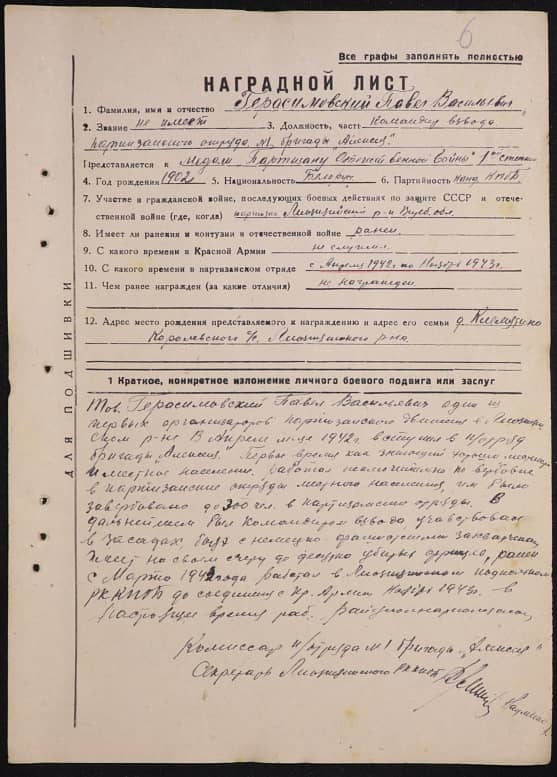 6
Все графы заполнять полностью
НАГРАДНОЙ ЛИСТ
1. Фамилия, имя и отчество Герасимовский Павел Васильевич
2. Звание не имеет 3. Должность, часть Командир взвода
партизанского отряда №1 бригады „Алексея"
Представляется к медали „Партизану Отечественной Войны" 1ой степени
4. Год рождения 1902г 5. Национальность Белорус 6. Партийность Канд. КПбБ
7. Участие в гражданской войне, последующих боевых действиях по защите СССР и отече-
ственной войне (где, когда) Лиозненский р-н Витеб. обл.
8. Имеет ли ранения и контузии в отечественной войне ранен
9. С какого времени в Красной Армии не служил
10. С какого времени в партизанском отряде с Апреля 1942г по Ноябрь 1943г.
11. Чем ранее награжден (за какие отличия) не награжден
12. Адрес место рождения представляемого к награждению и адрес его семьи д.
Королевского с/с Лиозненского р-на
ДЛЯ ПОДШИВКИ
1 Краткое, конкретное изложение личного боевого подвига или заслуг
Тов. Герасимовский Павел Васильевич один из
первых организаторов партизанского движения в Лиознен
ском р-не В Апреле м-це 1942г вступил в п/отряд
бригады Алексея. Первое время как знающий хорошо
и местное население. Работал по вербовке
в партизанские отряды местного населения, им было
завербовано до 300 чел. в партизанские отряды. В
дальнейшем был Командиром взвода, участвовал
в засадах, боях с немецко-фашистскими захватчиками
имеет на своем счету до десятка убитых фрицев, ранен
С Марта 194 года работал в Лиозненском подпольном
РККПбБ до соединения с Кр. Армией Ноябрь 1943г. в
настоящее время раб.
Комиссар п/отряда №1 бригады „Алексея"
Секретарь Лиозненского РККПбБ